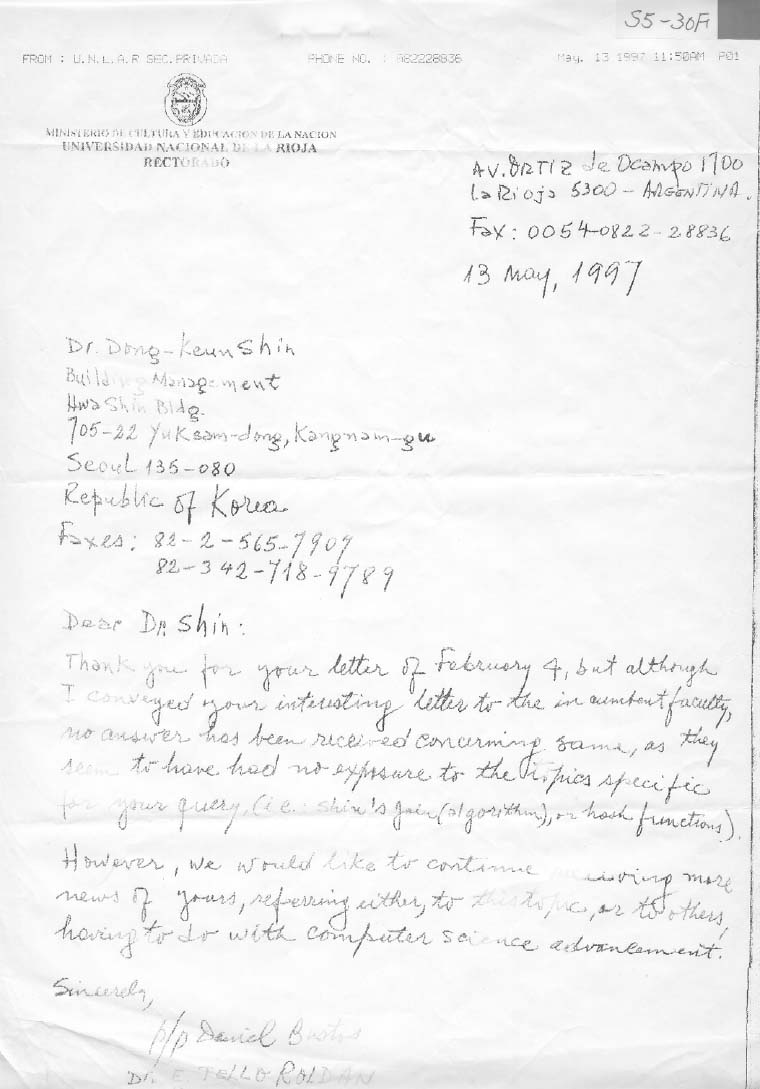 S5-30A
FROM : U.N.L.A.R SEC.PRIVADA PHONE NO. : 082228836 May. 13 1997 11:50AM P01
MINISTERIO DE CULTURA Y EDUCACION DE LA NACION
UNIVERSIDAD NACIONAL DE LA RIOJA
RECTORADO
AV. ORTIZ de Ocampo 1700
La Rioja 5300 - ARGENTINA.
Fax: 0054-0822-28836
13 May, 1997
Dr. Dong-Keun Shin
Building Management
Hwa Shin Bldg.
705-22 Yuksam-dong, Kangnam-gu
Seoul 135-080
Republic of Korea
Faxes: 82-2-565-7907
82-342-718-9789
Dear Dr. Shin:
Thank you for your letter of February 4, but although
I conveyed your interesting letter to the incumbent faculty,
no answer has been received concerning same, as they
seem to have had no exposure to the topics specific
for your query, (i.e.: Shin's join (algorithm), or hash functions).
However, we would like to continue receiving more
news of yours, referring either, to this topic, or to others,
having to do with computer science advancement.
Sincerely,
p/p Daniel Bustos
Dr. E. TELLO ROLDAN